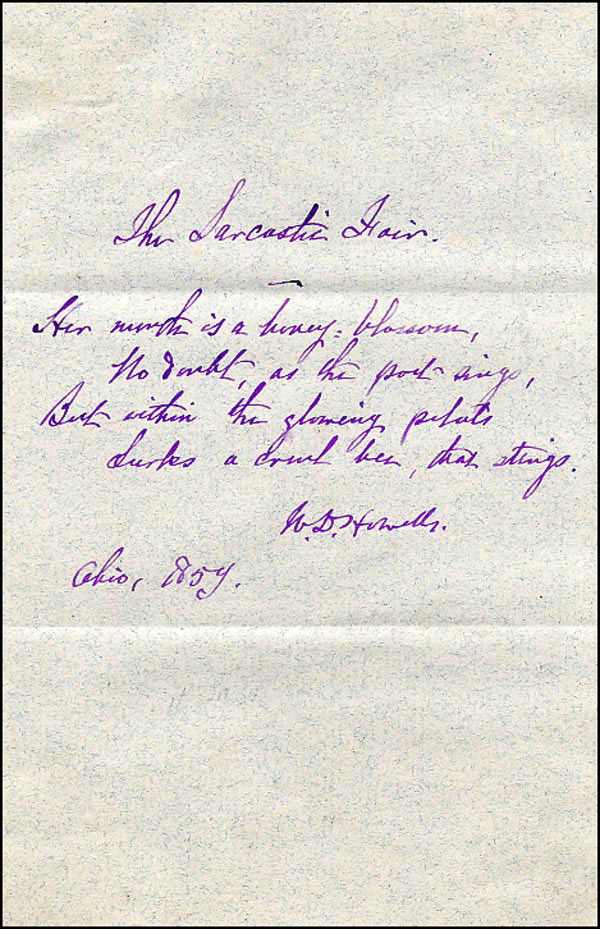 The Sarcastic Fair.
Her mouth is a honey-blossom,
No doubt, as the poet sings,
But within the glowing petals
Lurks a cruel bee, that stings.
W.D. Howells.
Ohio, 1859.